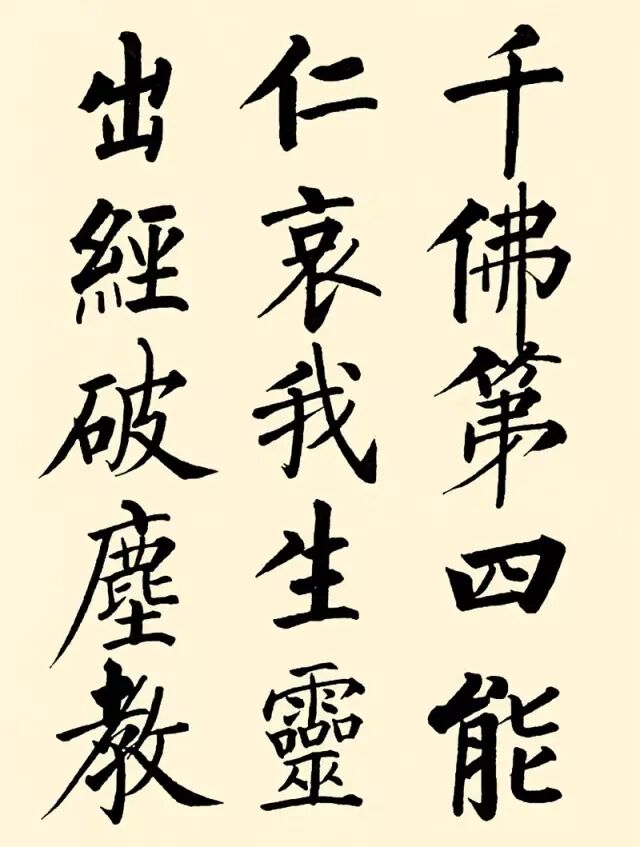 千佛第四能
仁哀我生靈
出經破塵教